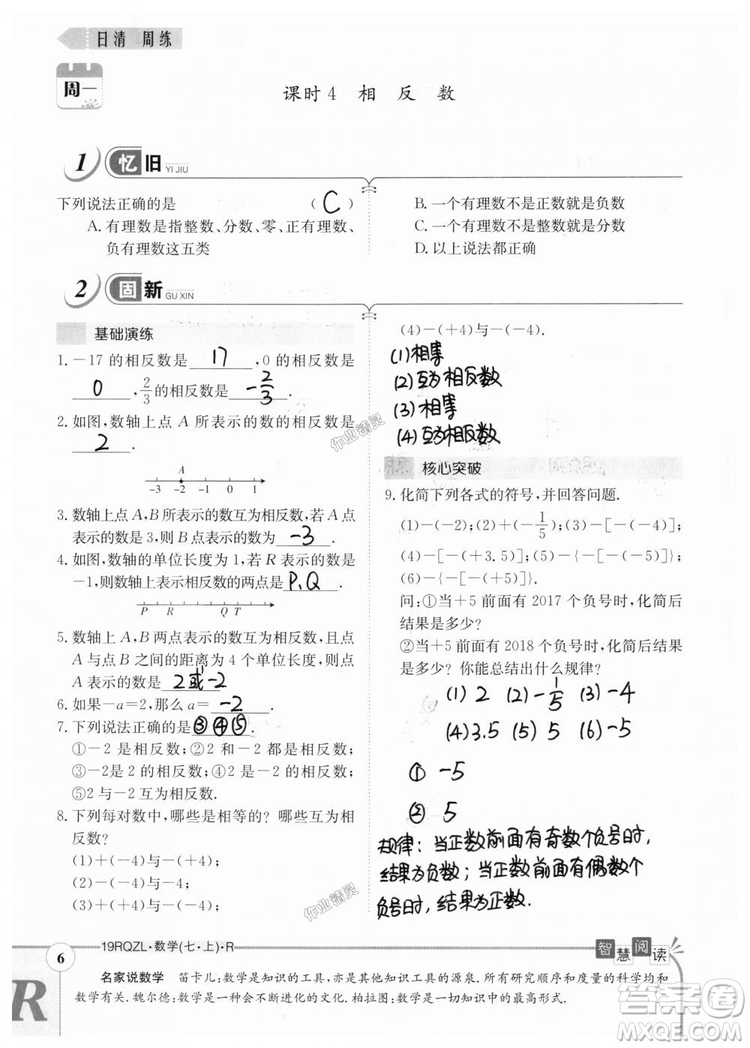 日清 周练
周一
课时4 相 反 数
1 忆 旧 YI JIU
下列说法正确的是 ( C )
A. 有理数是指整数、分数、零、正有理数、
负有理数这五类
B. 一个有理数不是正数就是负数
C. 一个有理数不是整数就是分数
D. 以上说法都正确
2 固 新 GU XIN
基础演练
1. －17 的相反数是 17 ,0 的相反数是
0 , 2/3 的相反数是 －2/3 .
2. 如图,数轴上点 A 所表示的数的相反数是
2 .
A
-3 -2 -1 0 1 2 3
3. 数轴上点 A,B 所表示的数互为相反数,若点 A
表示的数是 3,则点 B 表示的数为 －3 .
4. 如图,数轴的单位长度为 1,若点 R 表示的数是
－1,则互为相反数的两点是 P,Q .
P R Q T
5. 数轴上 A,B 两点表示的数互为相反数,且点
A 与点 B 之间的距离为 4 个单位长度,则点
A 表示的数是 2或-2 .
6. 如果－a＝2,那么 a＝ －2 .
7. 下列说法正确的是 ③④⑤ .
①－2 是相反数;②2 和－2 都是相反数;
③－2 是 2 的相反数;④－2 和 2 互为相反
数;⑤2 与－2 互为相反数.
8. 下列每对数中,哪些是相等的? 哪些互为相
反数?
(1)＋(－4)与－(＋4);
(2)－(－4)与－4;
(3)－(－4)与＋(＋4);
(4)－(＋4)与－(－4).
(1)相等
(2)互为相反数
(3)相等
(4)互为相反数
核心突破
9. 化简下列各式的符号,并回答问题.
(1)－(－2);(2)＋(－1/5);(3)－[－(－4)];
(4)－[－(＋3.5)];(5)－{－[－(－5)]};
(6)－{－[－(＋5)]}.
问:①当＋5 前面有 2017 个负号时,化简后
结果是多少?
②当＋5 前面有 2018 个负号时,化简后结果
是多少? 你能总结出什么规律?
(1) 2 (2) －1/5 (3) －4
(4) 3.5 (5) 5 (6) －5
① －5
② 5
规律：当正数前面有奇数个负号时,
结果为负数；当正数前面有偶数个
负号时,结果为正数。
6
19RQZL·数学(七·上)·R
智慧阅读
名家说数学 笛卡儿:数学是知识的工具,亦是其他知识工具的源泉.所有研究顺序和度量的科学均和
数学有关.魏尔德:数学是一种会不断进化的文化.柏拉图:数学是一切知识中的最高形式.
R
作业精灵
作业精灵
答案圈
MXQE.COM